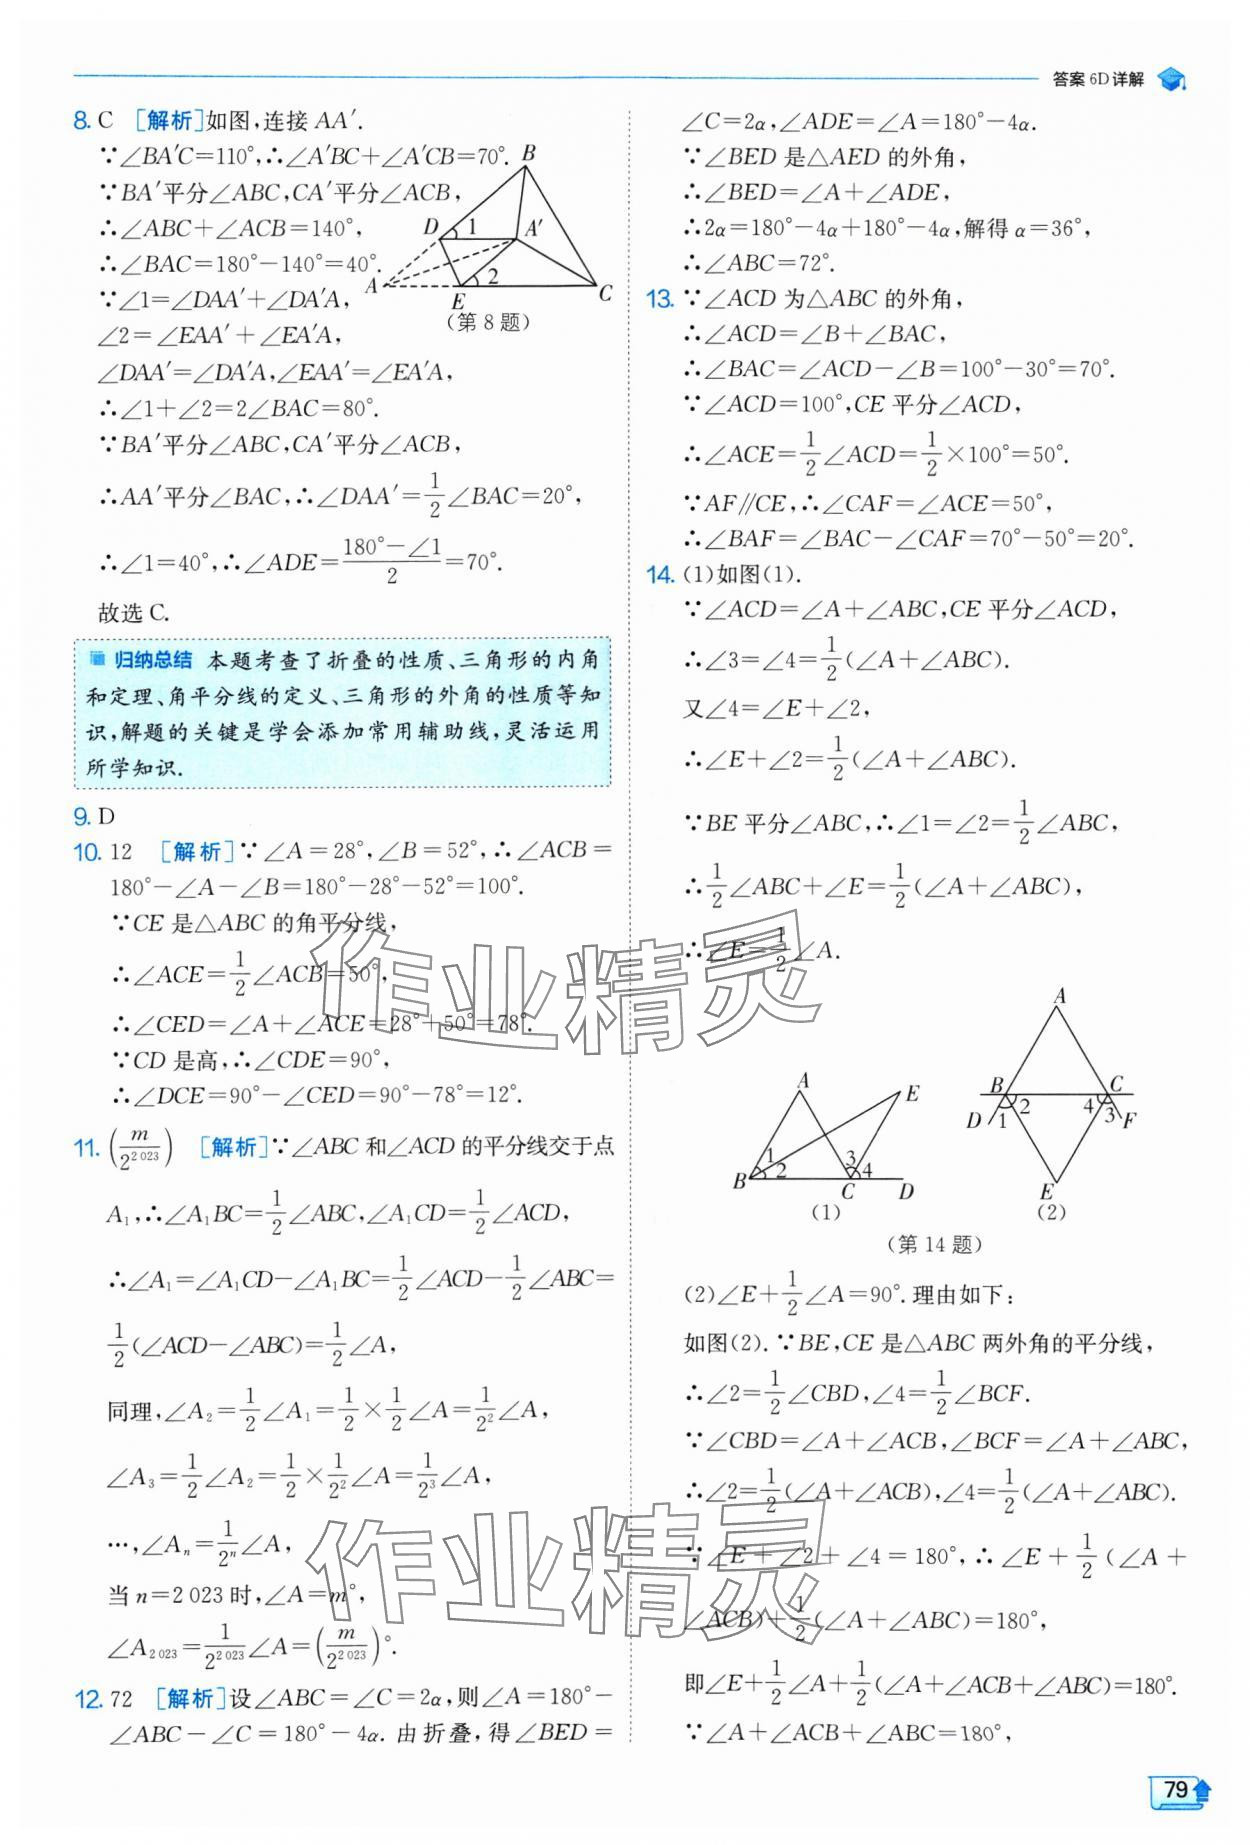 答案 6D 详解
8. C [解析]如图,连接 AA′.
∵∠BA′C=110°,∴∠A′BC+∠A′CB=70°.
∵BA′平分∠ABC,CA′平分∠ACB,
∴∠ABC+∠ACB=140°,
∴∠BAC=180°-140°=40°.
∵∠1=∠DAA′+∠DA′A,
∠2=∠EAA′+∠EA′A,
∠DAA′=∠DA′A,∠EAA′=∠EA′A,
∴∠1+∠2=2∠BAC=80°.
∵BA′平分∠ABC,CA′平分∠ACB,
∴AA′平分∠BAC,∴∠DAA′=1/2∠BAC=20°,
∴∠1=40°,∴∠ADE=(180°-∠1)/2=70°.
故选 C.
B
D 1 A′
A 2
E C
(第 8 题)
归纳总结 本题考查了折叠的性质、三角形的内角
和定理、角平分线的定义、三角形的外角的性质等知
识,解题的关键是学会添加常用辅助线,灵活运用
所学知识.
9. D
10. 12 [解析]∵∠A=28°,∠B=52°,∴∠ACB=
180°-∠A-∠B=180°-28°-52°=100°.
∵CE 是△ABC 的角平分线,
∴∠ACE=1/2∠ACB=50°,
∴∠CED=∠A+∠ACE=28°+50°=78°.
∵CD 是高,∴∠CDE=90°,
∴∠DCE=90°-∠CED=90°-78°=12°.
11. (m/2^2 023) [解析]∵∠ABC 和∠ACD 的平分线交于点
A₁,∴∠A₁BC=1/2∠ABC,∠A₁CD=1/2∠ACD,
∴∠A₁=∠A₁CD-∠A₁BC=1/2∠ACD-1/2∠ABC=
1/2(∠ACD-∠ABC)=1/2∠A,
同理,∠A₂=1/2∠A₁=1/2×1/2∠A=1/2²∠A,
∠A₃=1/2∠A₂=1/2×1/2²∠A=1/2³∠A,
…,∠Aₙ=1/2ⁿ∠A,
当 n=2 023 时,∠A=m°,
∠A₂₀₂₃=1/2^2 023∠A=(m/2^2 023)°.
12. 72 [解析]设∠ABC=∠C=2α,则∠A=180°-
∠ABC-∠C=180°-4α. 由折叠,得∠BED=
∠C=2α,∠ADE=∠A=180°-4α.
∵∠BED 是△AED 的外角,
∴∠BED=∠A+∠ADE,
∴2α=180°-4α+180°-4α,解得 α=36°,
∴∠ABC=72°.
13. ∵∠ACD 为△ABC 的外角,
∴∠ACD=∠B+∠BAC,
∴∠BAC=∠ACD-∠B=100°-30°=70°.
∵∠ACD=100°,CE 平分∠ACD,
∴∠ACE=1/2∠ACD=1/2×100°=50°.
∵AF∥CE,∴∠CAF=∠ACE=50°,
∴∠BAF=∠BAC-∠CAF=70°-50°=20°.
14. (1)如图(1).
∵∠ACD=∠A+∠ABC,CE 平分∠ACD,
∴∠3=∠4=1/2(∠A+∠ABC).
又∠4=∠E+∠2,
∴∠E+∠2=1/2(∠A+∠ABC).
∵BE 平分∠ABC,∴∠1=∠2=1/2∠ABC,
∴1/2∠ABC+∠E=1/2(∠A+∠ABC),
∴∠E=1/2∠A.
A E
1 2 3 4
B C D
(1)
A
B 2 4 C
D 1 3 F
E
(2)
(第 14 题)
(2)∠E+1/2∠A=90°.理由如下:
如图(2). ∵BE,CE 是△ABC 两外角的平分线,
∴∠2=1/2∠CBD,∠4=1/2∠BCF.
∵∠CBD=∠A+∠ACB,∠BCF=∠A+∠ABC,
∴∠2=1/2(∠A+∠ACB),∠4=1/2(∠A+∠ABC).
∵∠E+∠2+∠4=180°,∴∠E+1/2(∠A+
∠ACB)+1/2(∠A+∠ABC)=180°,
即∠E+1/2∠A+1/2(∠A+∠ACB+∠ABC)=180°.
∵∠A+∠ACB+∠ABC=180°,
79
作业精灵
作业精灵